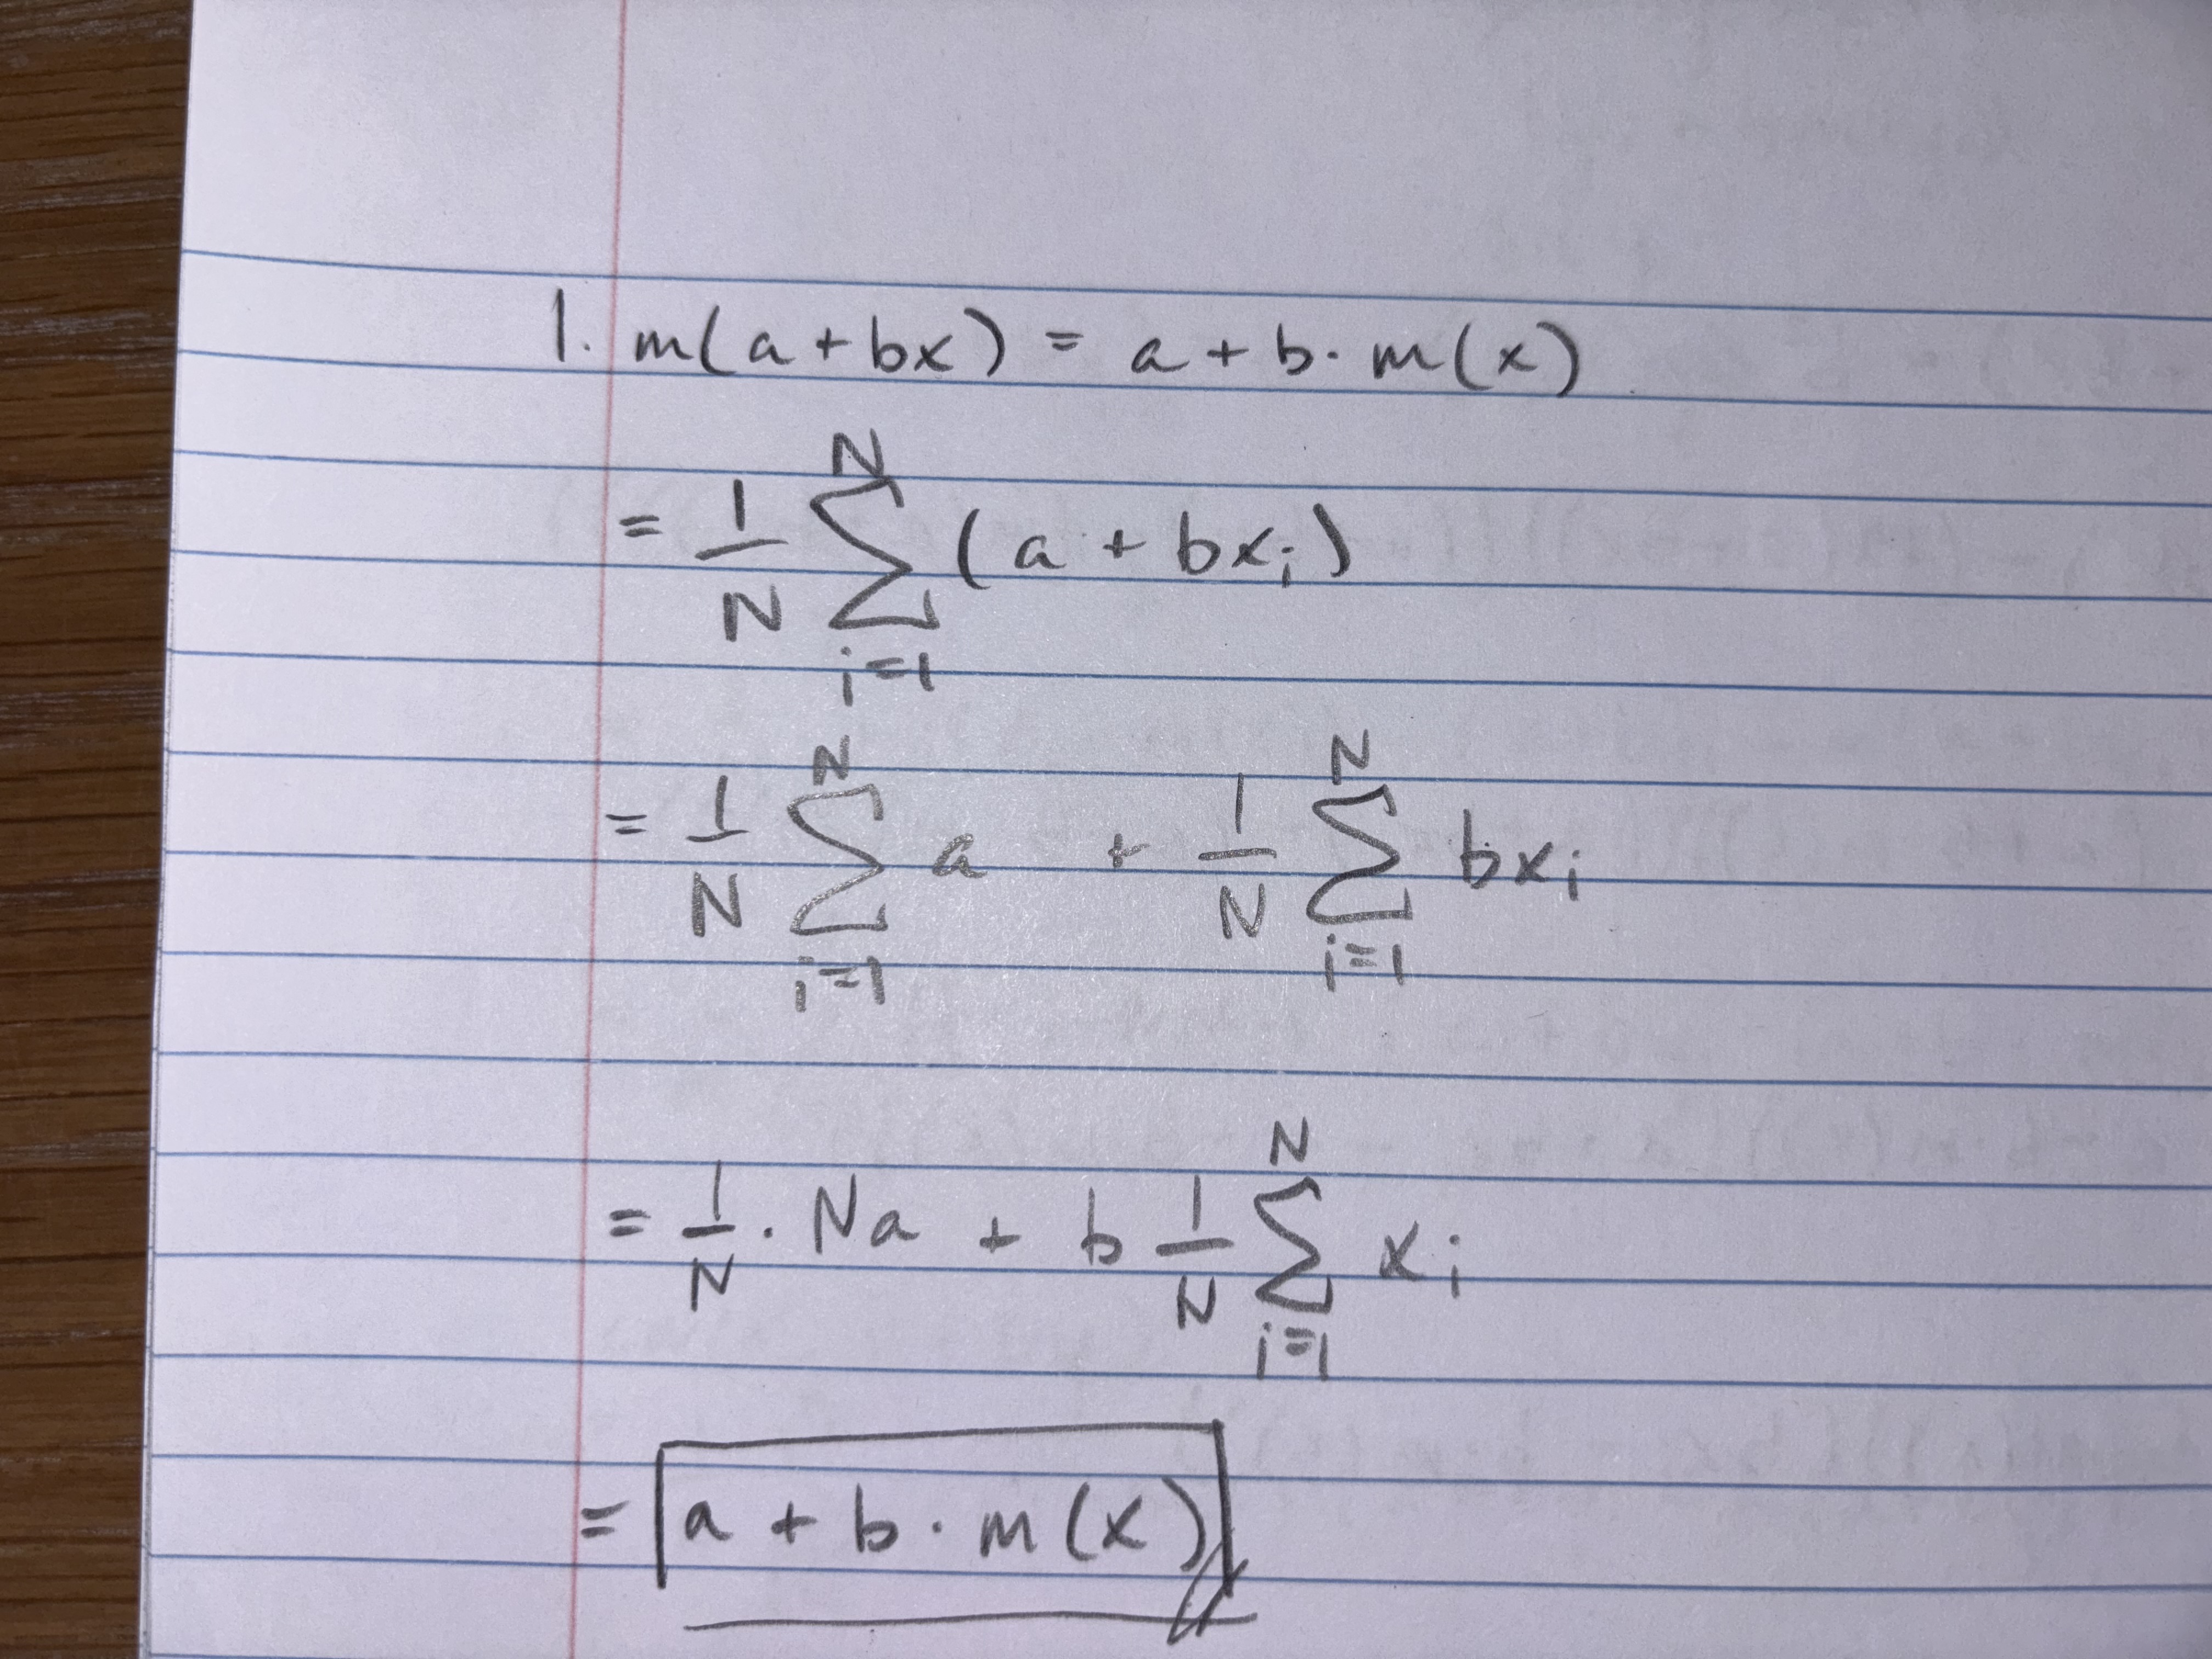 1. m(a+bx) = a + b · m(x)
= 1/N ∑_{i=1}^{N} (a + bx_i)
= 1/N ∑_{i=1}^{N} a + 1/N ∑_{i=1}^{N} bx_i
= 1/N · Na + b 1/N ∑_{i=1}^{N} x_i
= a + b · m(x)